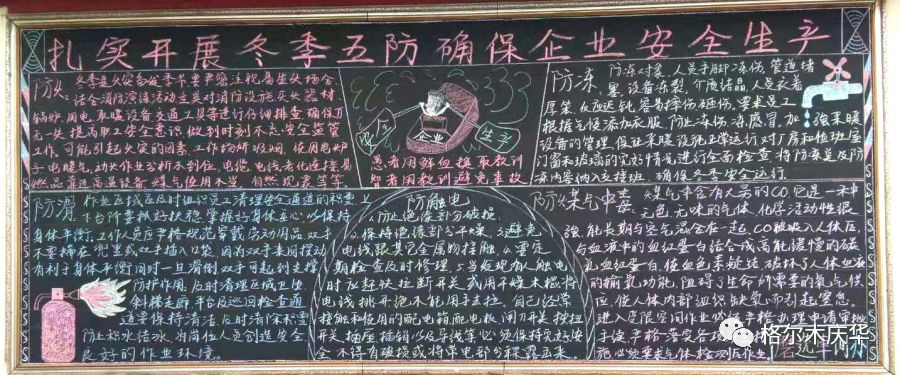 扎实开展冬季五防确保企业安全生产
防火
冬季是火灾多发季节要严密注视易生火场合
结合消防演练活动主要对消防设施灭火器材
锅炉、用电、取暖设备交通工具等进行仔细排查确保万
无一失 提高职工安全意识做到时刻不忘安全监管
工作。可能引起火灾的因素。工作场所吸烟、使用电炉
子电暖气、动火作业分析不到位、电缆、电线老化连接、易
燃品靠近高温设备 煤气使用不当、自然现象等等
安全
企业
生产
愚者用鲜血换取教训
智者用教训避免事故
防冻
防冻对象、人员手脚冻伤、管道堵
塞、设备冻裂、介质结晶、人员衣着
厚笨、反应迟钝、容易摔伤砸伤、要求员工
根据气候添加衣服 防止冻伤、冻感冒、加强采暖
设备的管理、保证采暖设施正常运行对厂房和值班室
门窗和玻璃的完好情况进行全面检查 将防冻凝及防
冻内容纳入交接班、确保冬季安全运行
防滑
作业区域应及时组织员工清理安全通道的积雪
上下台阶要抓好扶稳 掌握好身体重心、以保持
身体平衡、工作人员应严格规范穿戴劳动用品 双手
不要揣在兜里或双手插入口袋、因为双手来回摆动
有利于身体平衡同时一旦滑倒双手可起到支撑
防护作用、及时清理区域卫生
斜梯走廊平台及巡回检查通
道要保持清洁、及时清除积雪
防止积水结冰、为岗位人员创造安全
良好的作业环境。
防触电
1、防止绝缘部分破损、
2、保持绝缘部分干燥、3、避免
电线跟其它金属物接触、4、要定
期检查及时修理、5、当发现有人触电
时应赶快拉断开关或用干燥木棍将
电线挑开绝不能用手去拉、自己经常
接触和使用的配电箱、配电板、闸刀开关、按扭
开关、插座、插销以及导线等必须保持完好安
全、不得有破损或将带电部分裸露出来。
防煤气中毒
煤气中含有大量的CO它是一种
无色、无味的气体、化学活动性很
强、能长期与空气混合在一起、CO被吸入人体后
与血液中的血红蛋白结合成高能缓慢的碳
氧血红蛋白、使血色素凝结、破坏了人体血液
的输氧功能、阻碍了生命所需要的氧气供
应、使人体内部组织缺氧、而引起窒息。
进入受限空间作业必须严格办理申请审批
手续
格尔木庆华